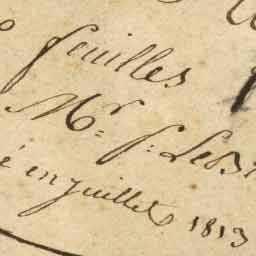 feuilles
Mr. f: Les
é en juillet 1813